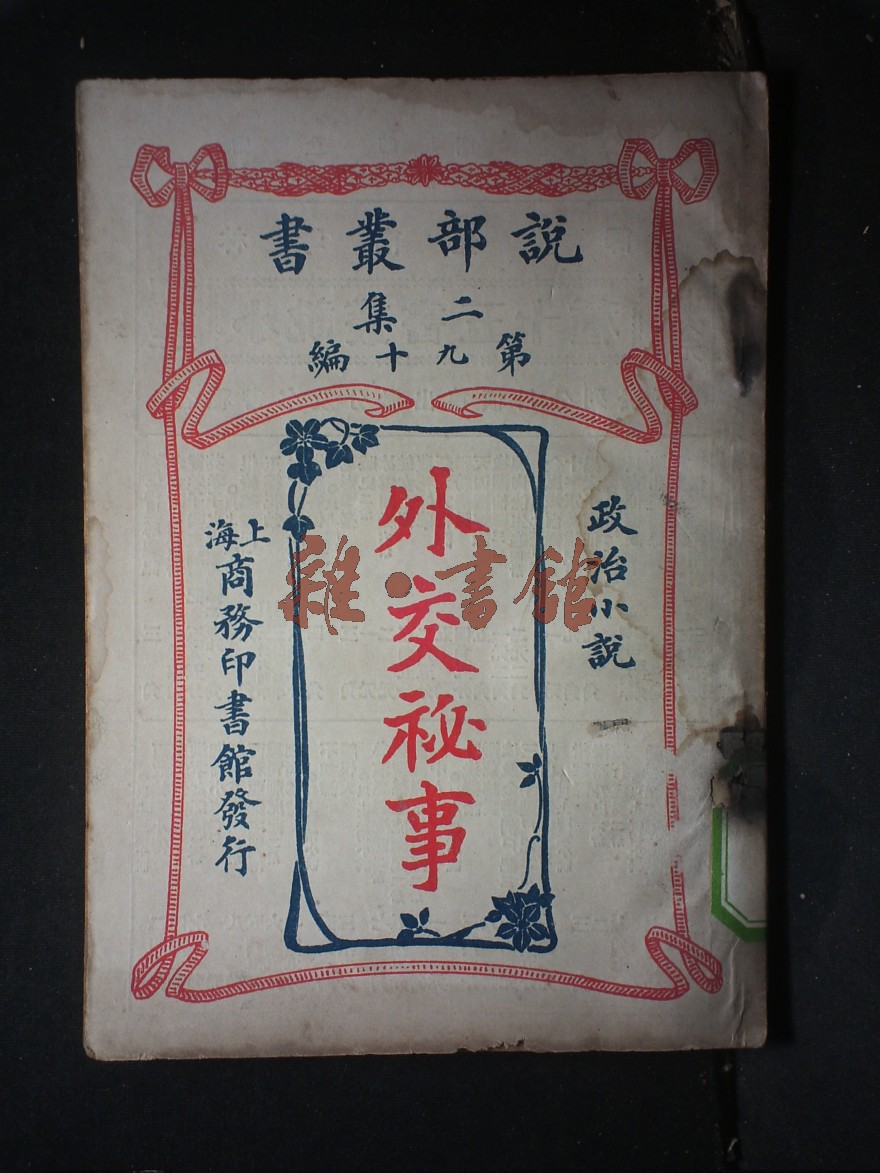 說部叢書
二集
第九十編
政治小說
外交祕事
上海商務印書館發行
雜·書館